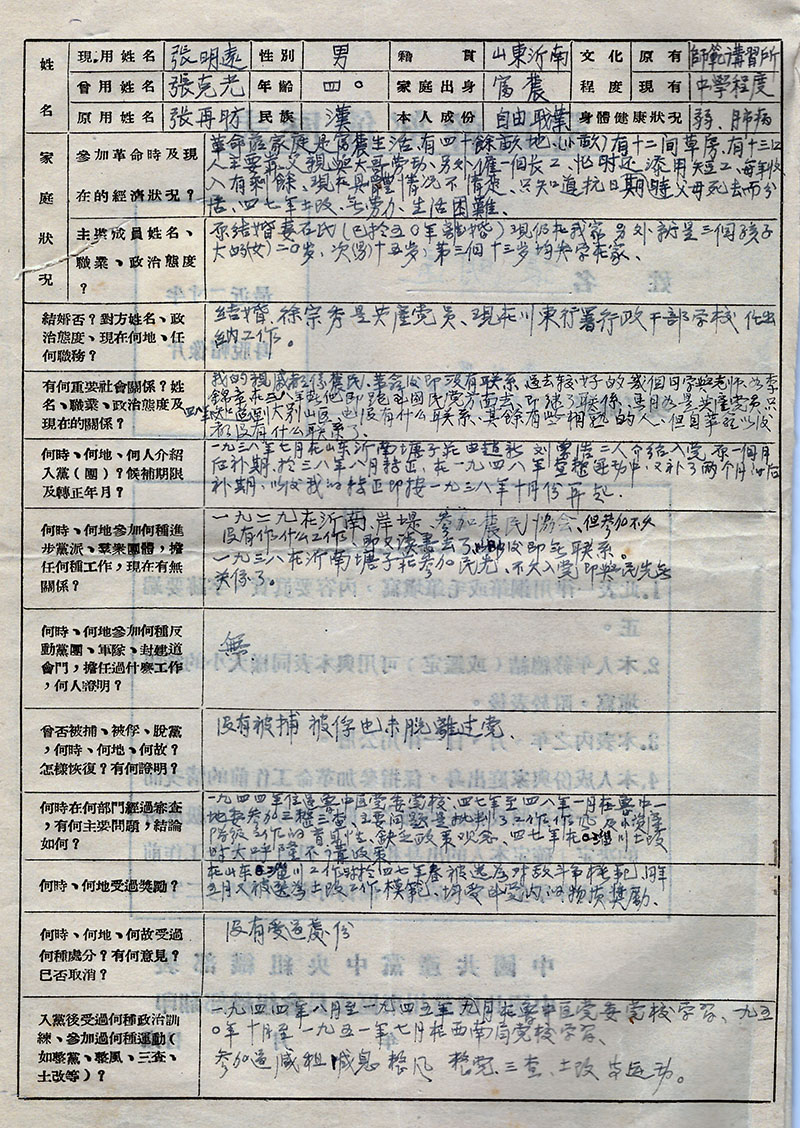 姓名
現用姓名 張明遠 性別 男 籍貫 山東沂南 文化程度 原有 師範講習所
曾用姓名 張克光 年齡 四〇 家庭出身 富農 現有 中學程度
原用姓名 張再昉 民族 漢 本人成份 自由職業 身體健康狀況 弱、肺病
家庭狀況
參加革命時及現
在的經濟狀況？
革命前家庭是富農生活，有四十餘畝地（小畝）有十二間草房，有十三口
人主要靠父親與大哥劳动、另外雇一個長工，忙時还添用短工，每年收
入有剩餘、現在具體情况不清楚、只知道抗日期時父母死去而分
居、四七年土改、無劳力、生活困難。
主要成員姓名、
職業、政治態度
？
原结婚妻石氏（已於五〇年離婚）現仍在我家另外就是三個孩子
大的（女）二〇岁，次（男）十五岁，第三個十三岁均失学在家。
結婚否？對方姓名、政
治態度、現在何地、任
何職務？
结婚、徐宗秀是共產党员、現在川東行署行政干部学校作出
纳工作。
有何重要社會關係？姓
名、職業、政治態度及
現在的關係？
我的親戚都係農民、革命後即没有联系，過去较好的幾個同学與老师
他即跑到國民党方面去，即绝了联係
大别山区，也没有什么联系、其餘有些相熟的人、但自革命以後
都没有什么联系了。
何時、何地、何人介紹
入黨（團）？候補期限
及轉正年月？
一九三八年七月在山东沂南塘子庄由趙 刘 二人介绍入党 原一個月
后补期，於三八年八月轉正，在一九四八年整党运动中，又补了两个月的后
补期，以後我的轉正即按一九三八年十月份算起.
何時、何地參加何種進
步黨派、羣衆團體，擔
任何種工作，現在有無
關係？
一九二九在沂南、岸堤、參加農民協会、但參加不久
没有作什么工作，即又读書去了，此後即無联系。
一九三八在沂南塘子庄參加民先、不久入党即與民先無
关係了。
何時、何地參加何種反
動黨團、軍隊、封建道
會門，擔任過什麽工作
，何人證明？
無
曾否被捕、被俘、脫黨
，何時、何地、何故？
怎樣恢復？有何證明？
没有被捕 被俘也未脱離过党、
何時在何部門經過審查
，有何主要問題，結論
如何？
一九四四年住過魯中区党委党校、四七年至四八年一月在魯中一
地委參加三整三查，主要問題是批判了工作作风及小資產
階级 的盲目性、缺乏政策观念、四七年在淄川土改
时大呼隆不講政策
何時、何地受過獎勵？
在山东淄川工作時於四七年春被选为对敌斗争模范，同年
五月又被选为土改工作模范、均受 物质獎勵、
何時、何地、何故受過
何種處分？有何意見？
已否取消？
没有受過處份
入黨後受過何種政治訓
練、參加過何種運動（
如整黨、整風、三查、
土改等）？
一九四四年八月至一九四五年九月在魯中区党委党校学習、一九五
〇年十月至一九五一年七月在西南局党校学習、
參加過减租减息 整风 整党、三查、土改 等运动。